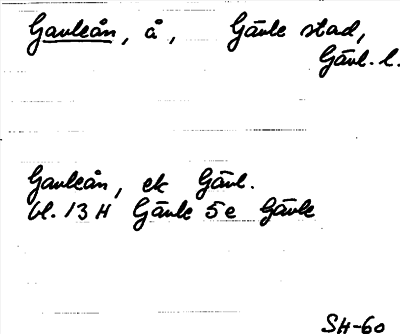 Gavleån, å, Gävle stad,
Gävl. l.
Gavleån, ek Gävl.
bl. 13 H Gävle 5e Gävle
SH-60